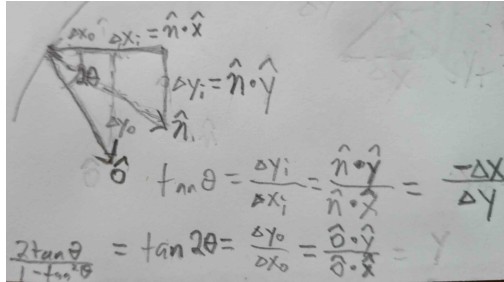 Δx₀ Δxᵢ = n̂·x̂
2θ
Δyᵢ = n̂·ŷ
Δy₀
n̂ᵢ
ô
tanθ = Δyᵢ/Δxᵢ = n̂·ŷ/n̂·x̂ = -ΔX/ΔY
2tanθ/1-tan²θ = tan2θ = Δy₀/Δx₀ = ô·ŷ/ô·x̂ = Y